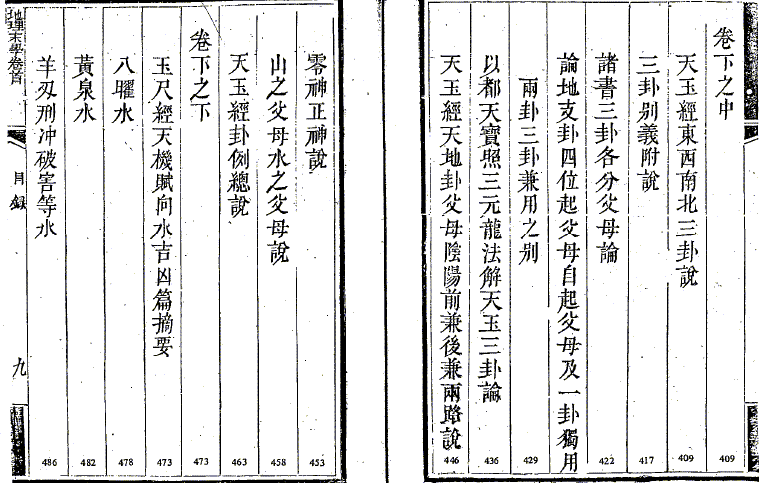 卷下之中
409
天玉經東西南北三卦說
409
三卦别義附說
417
諸書三卦各分父母論
422
論地支卦四位起父母自起父母及一卦獨用
兩卦三卦兼用之别
429
以都天寶照三元龍法解天玉三卦論
436
天玉經天地卦父母陰陽前兼後兼兩路說
446
零神正神說
453
山之父母水之父母說
458
天玉經卦例總說
463
卷下之下
473
玉尺經天機賦向水吉凶篇摘要
473
八曜水
478
黃泉水
482
羊刃刑冲破害等水
486
地理末學卷首
目錄
九